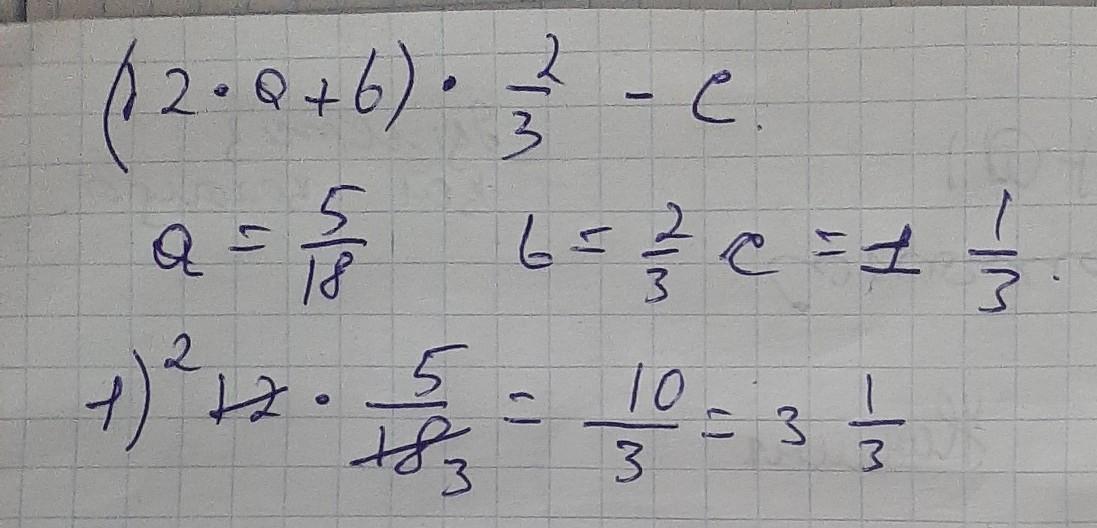 (12 · a + b) · 2/3 - c.
a = 5/18 b = 2/3 c = 1 1/3.
1) ²12 · 5/18₃ = 10/3 = 3 1/3